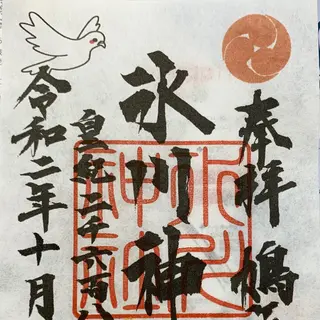 奉拝 鳩
氷川神
皇紀二千六百八
令和二年十月